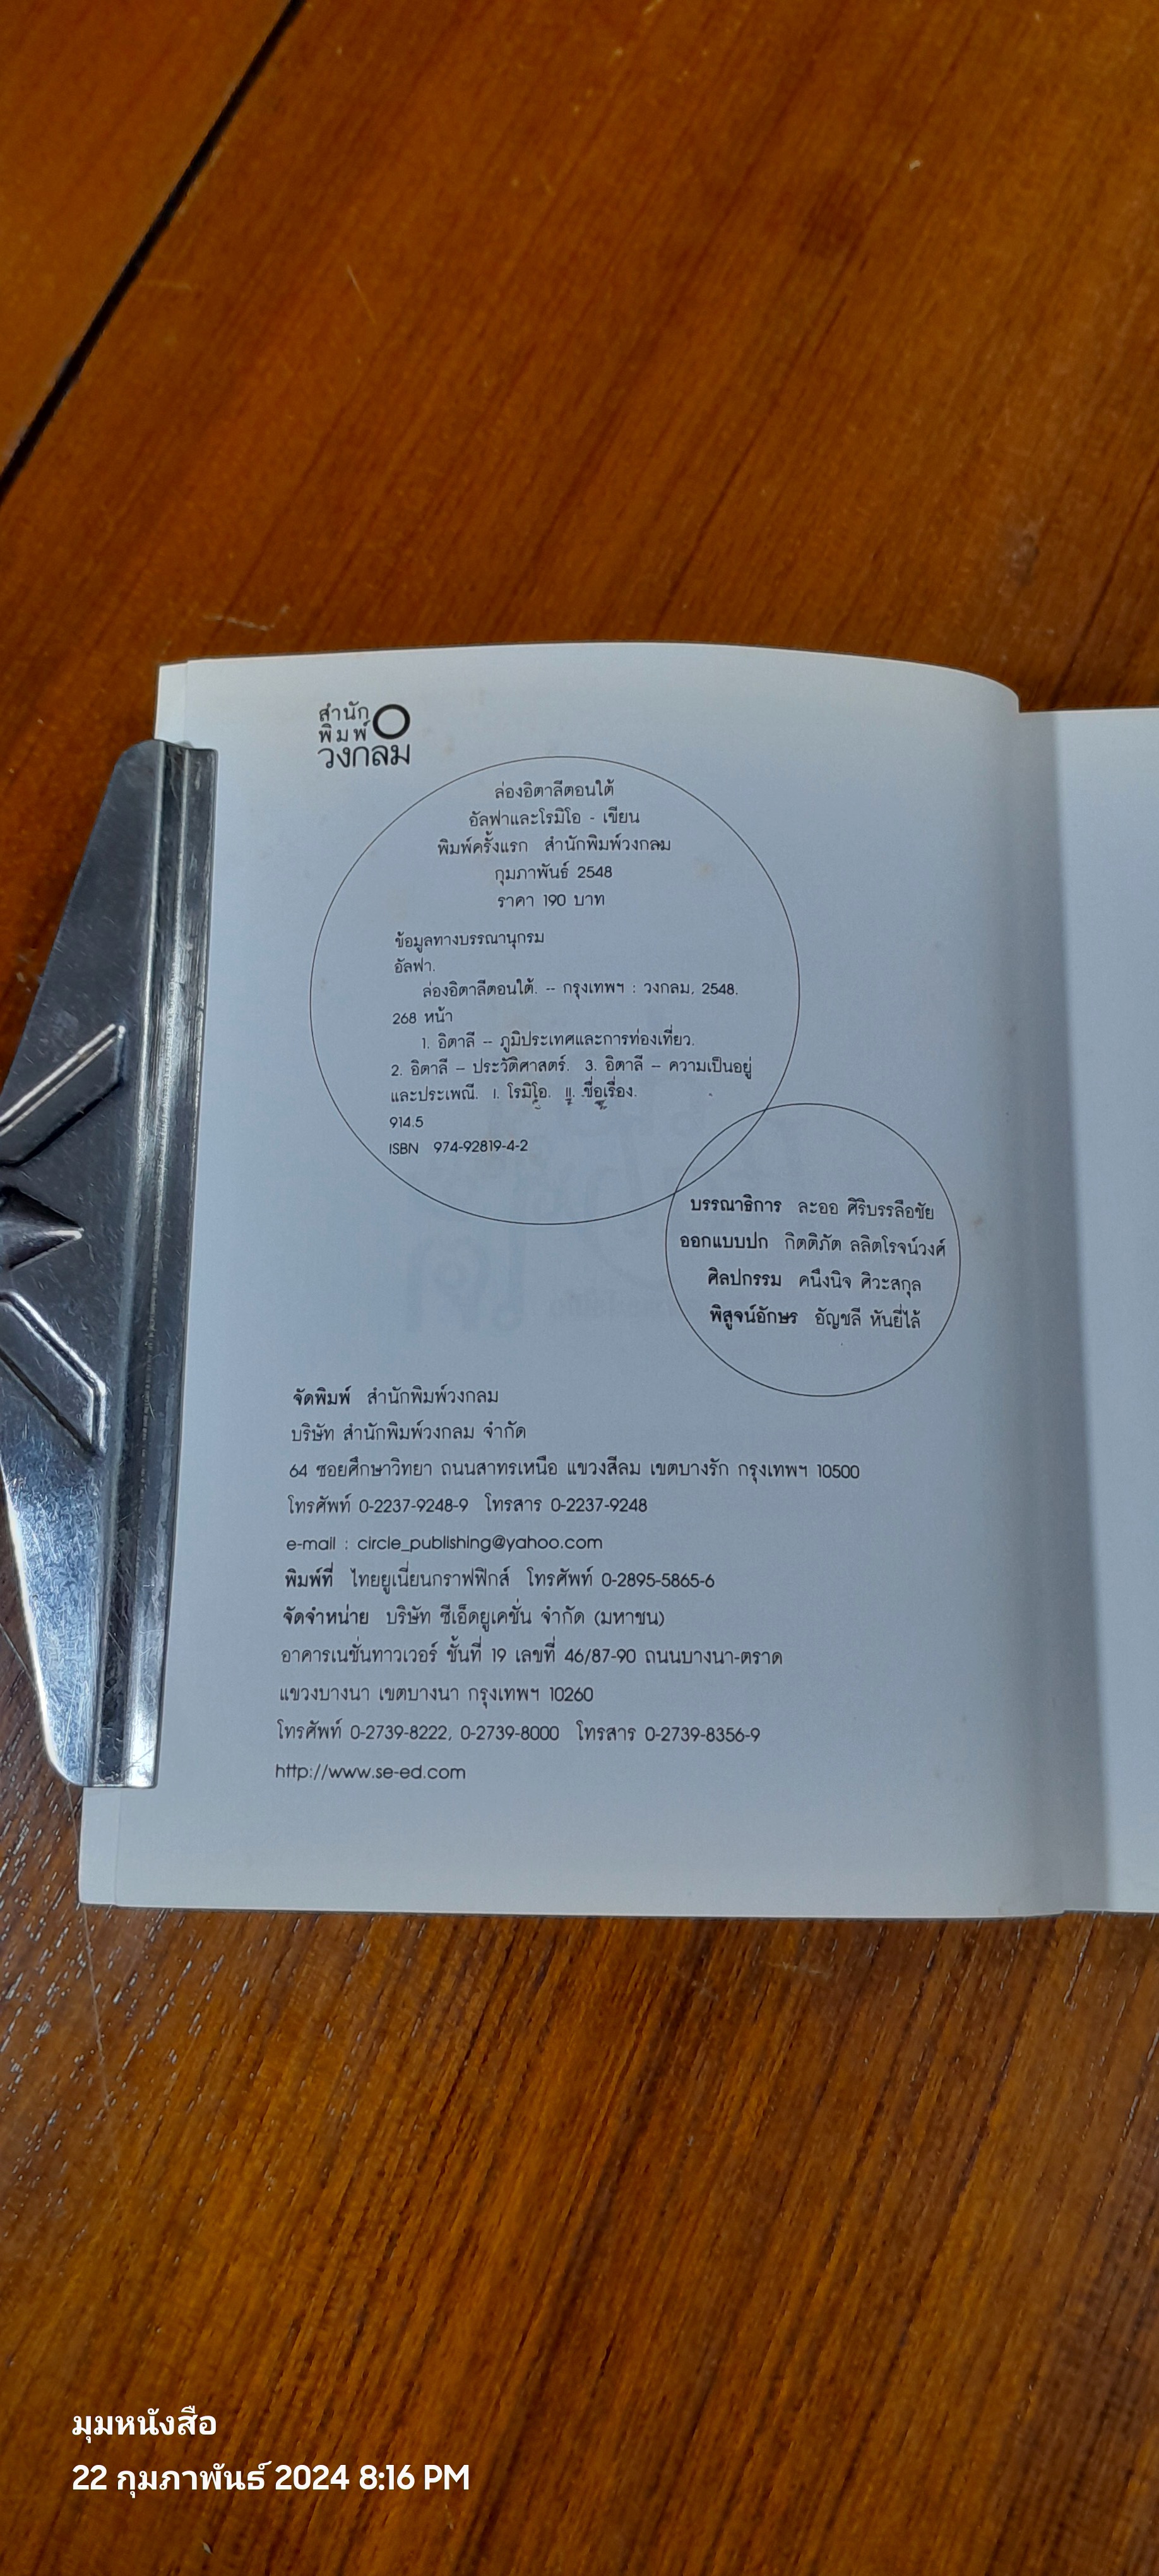 สำนัก
พิมพ์
วงกลม
ล่องอิตาลีตอนใต้
อัลฟาและโรมิโอ - เขียน
พิมพ์ครั้งแรก สำนักพิมพ์วงกลม
กุมภาพันธ์ 2548
ราคา 190 บาท
ข้อมูลทางบรรณานุกรม
อัลฟา.
ล่องอิตาลีตอนใต้. -- กรุงเทพฯ : วงกลม, 2548.
268 หน้า
1. อิตาลี -- ภูมิประเทศและการท่องเที่ยว.
2. อิตาลี -- ประวัติศาสตร์. 3. อิตาลี -- ความเป็นอยู่
และประเพณี. I. โรมิโอ. II. ชื่อเรื่อง.
914.5
ISBN 974-92819-4-2
บรรณาธิการ ละออ ศิริบรรลือชัย
ออกแบบปก กิตติภัต ลลิตโรจน์วงศ์
ศิลปกรรม คนึงนิจ ศิวะสกุล
พิสูจน์อักษร อัญชลี หันยี่ไล้
จัดพิมพ์ สำนักพิมพ์วงกลม
บริษัท สำนักพิมพ์วงกลม จำกัด
64 ซอยศึกษาวิทยา ถนนสาทรเหนือ แขวงสีลม เขตบางรัก กรุงเทพฯ 10500
โทรศัพท์ 0-2237-9248-9 โทรสาร 0-2237-9248
e-mail : circle_publishing@yahoo.com
พิมพ์ที่ ไทยยูเนี่ยนกราฟฟิกส์ โทรศัพท์ 0-2895-5865-6
จัดจำหน่าย บริษัท ซีเอ็ดยูเคชั่น จำกัด (มหาชน)
อาคารเนชั่นทาวเวอร์ ชั้นที่ 19 เลขที่ 46/87-90 ถนนบางนา-ตราด
แขวงบางนา เขตบางนา กรุงเทพฯ 10260
โทรศัพท์ 0-2739-8222, 0-2739-8000 โทรสาร 0-2739-8356-9
http://www.se-ed.com
มุมหนังสือ
22 กุมภาพันธ์ 2024 8:16 PM